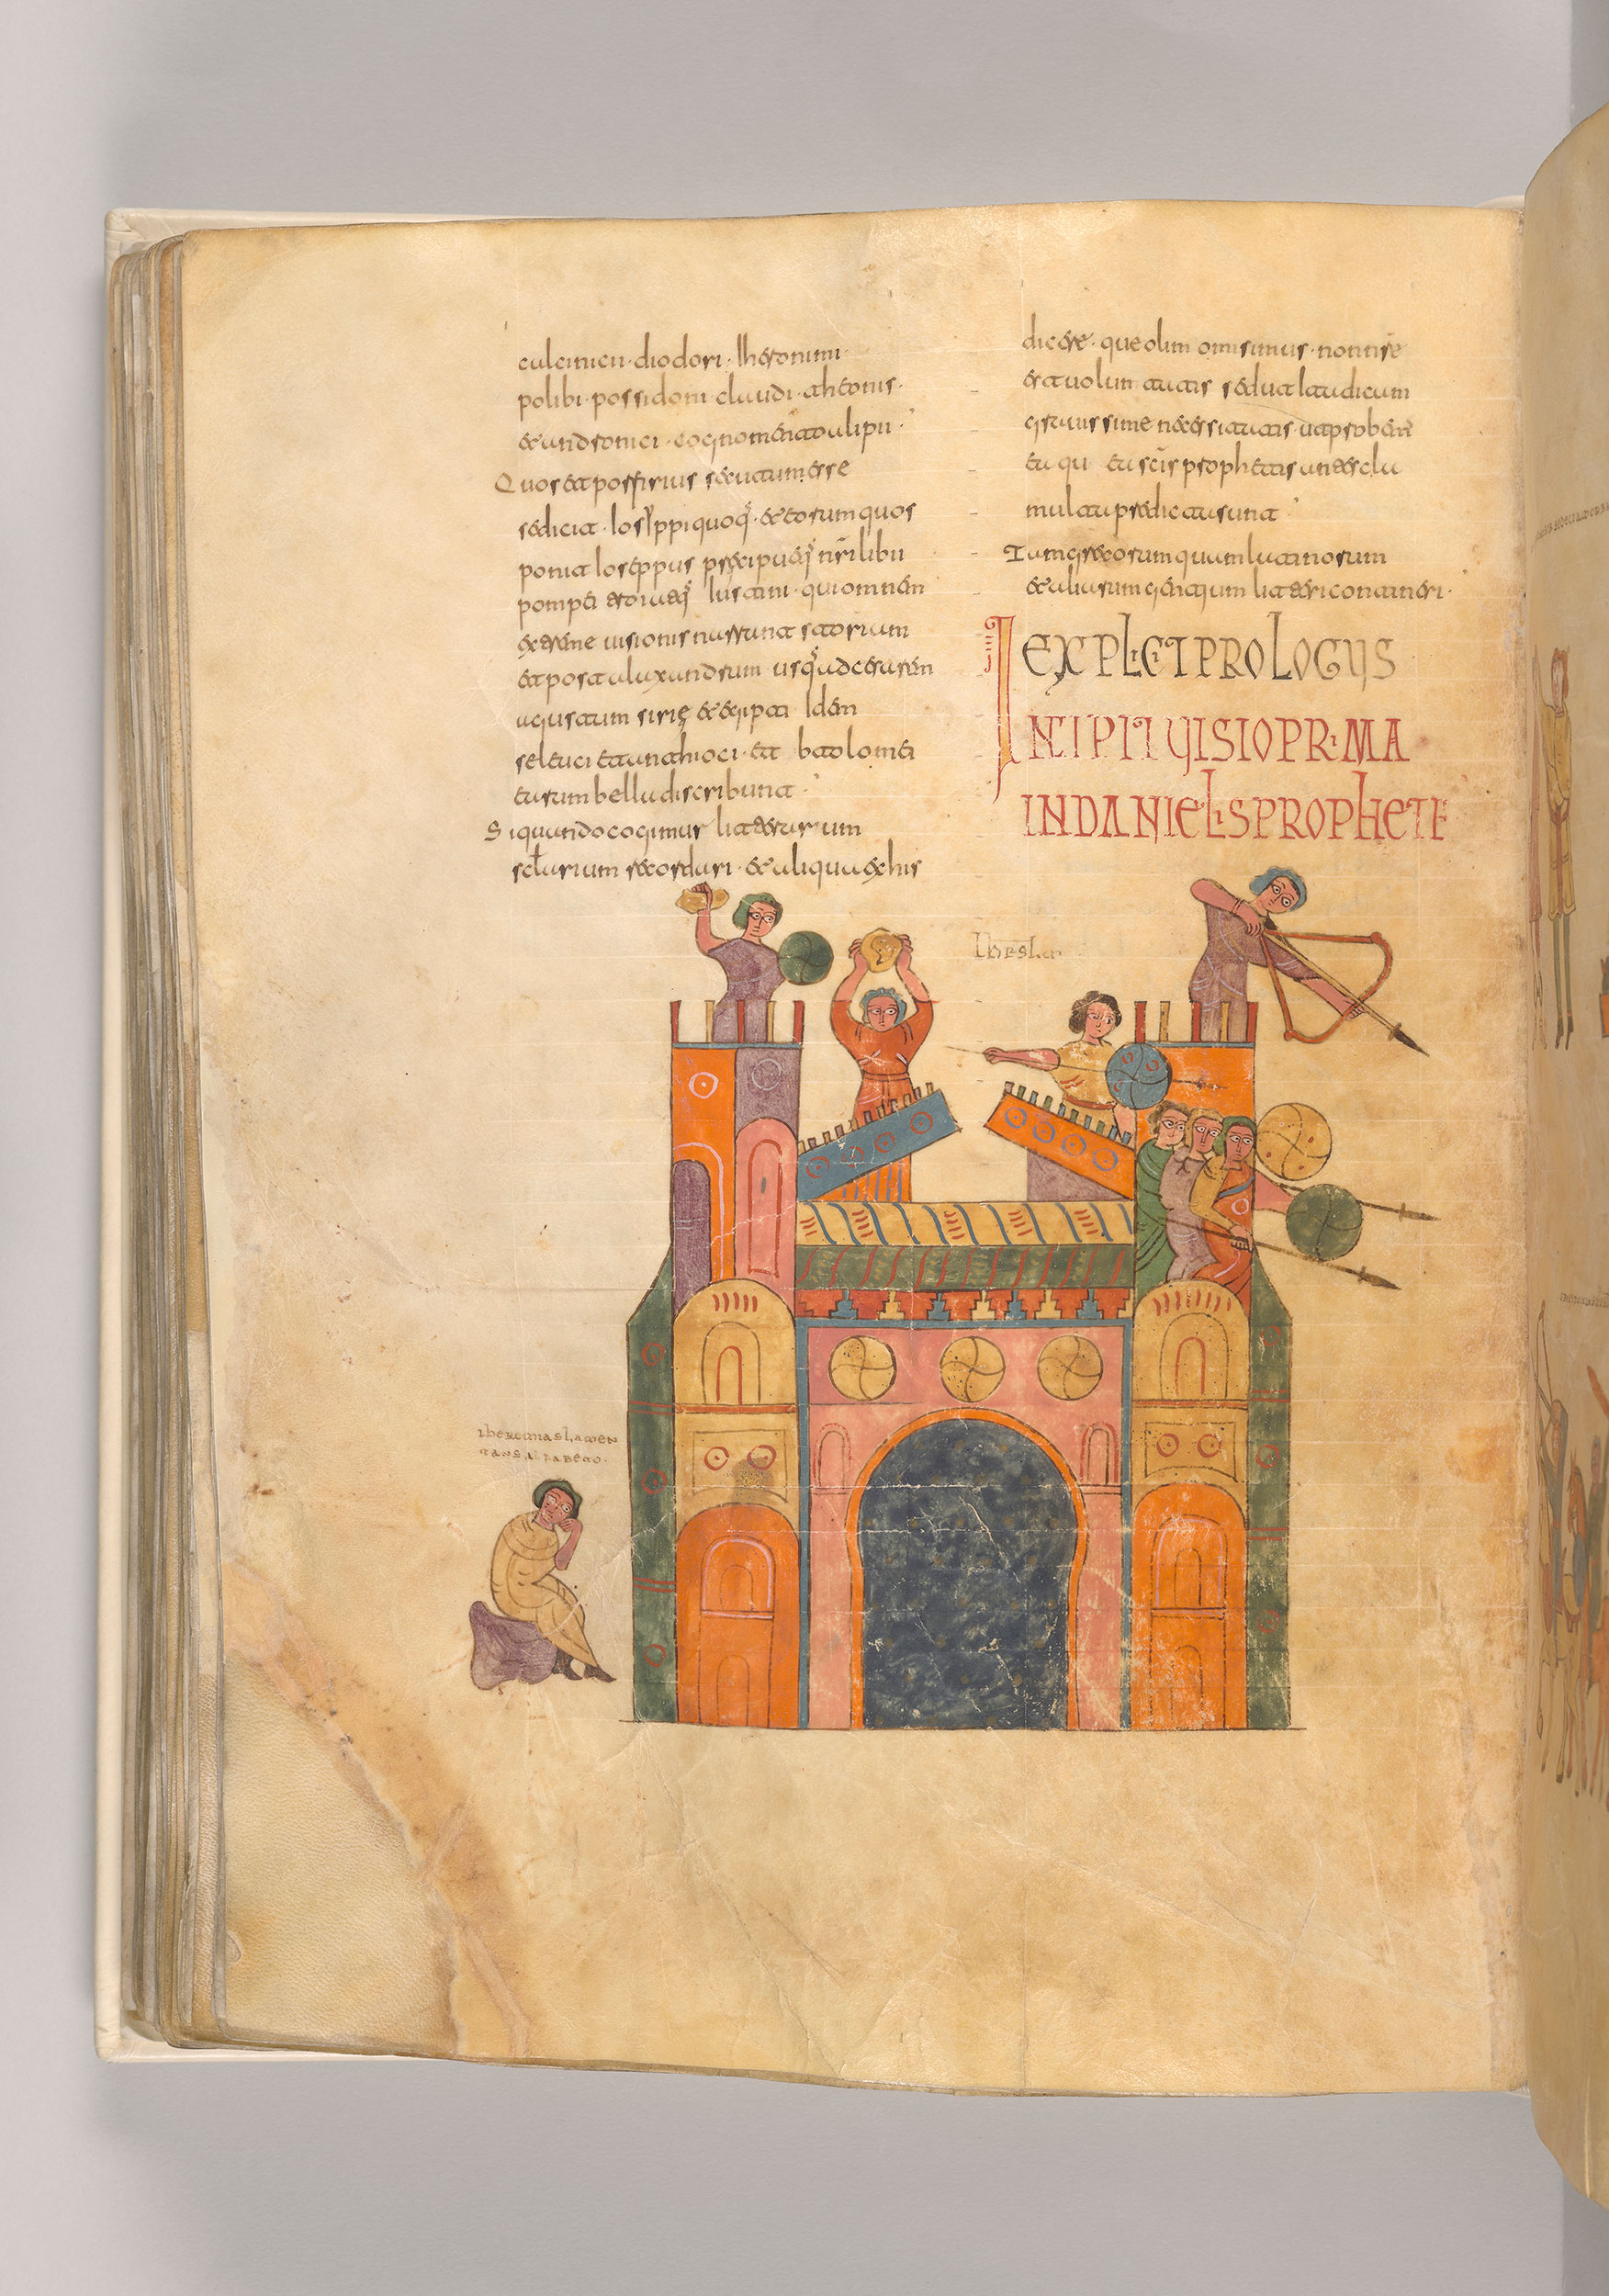 calcinicii · diodori · Iheronimi ·
polibi · possidoni · claudi · atheonis ·
et andronici · cognomento alipii ·
Quos et porfirius secutum esse
se dicit · Iosippi quoq · et eorum quos
ponit Ioseppus precipueq nsri libii
pompei atq Iustini · qui omnem
extreme uisionis narrant storium
et post alaxandrum usq ad cesarem
agustum sirie et egipti Iden
seleuci et antiochi · et batolomei
eorum bella discribunt ·
Si quando cogimur litterarum
sclarium recordari · et aliqua ex his
dicere · que olim omisimus · non nsre
est uoluntatis sed ut ita dicam
grauissime necessitatis ut proben
ea qu ea scis prophetis ante scla
multa predicta sunt
Tam grecorum quam latinorum
et aliarum gentium litteris contineri ·
EXPLICIT PROLOGUS
INCIPIT UISIO PRIMA
IN DANIELIS PROPHETE
Iheremias lamen
tans